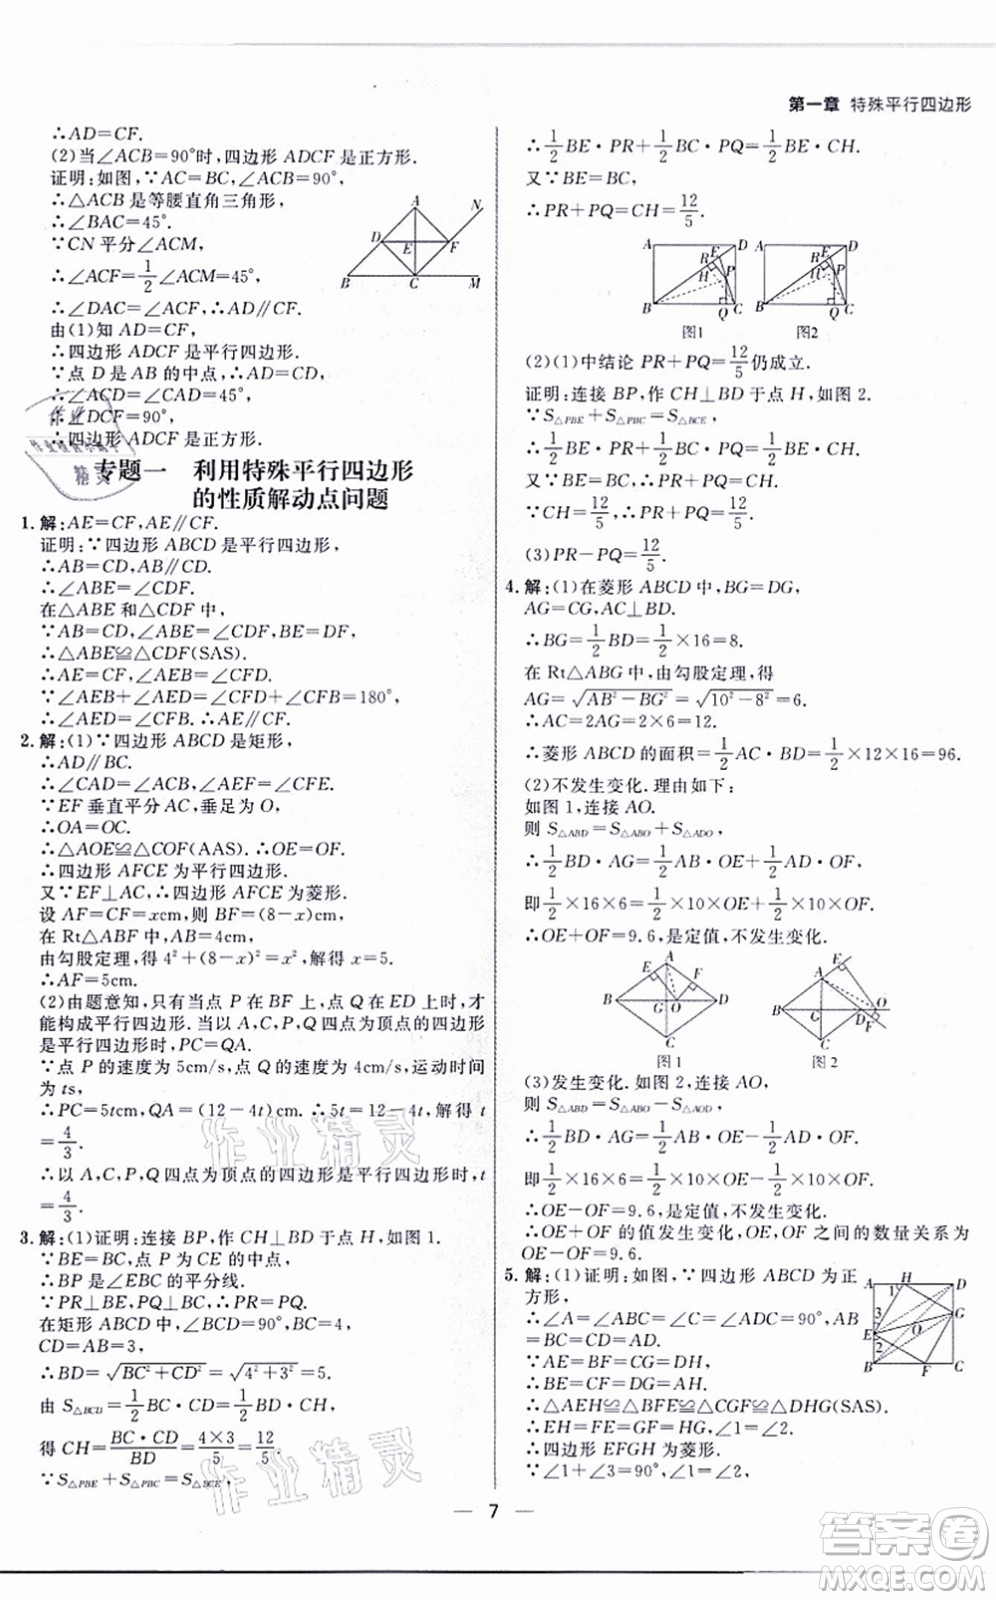 第一章 特殊平行四边形
∴AD=CF.
(2)当∠ACB=90°时,四边形 ADCF 是正方形.
证明:如图,∵AC=BC,∠ACB=90°,
∴△ACB 是等腰直角三角形,
∴∠BAC=45°.
∵CN 平分∠ACM,
∴∠ACF=1/2∠ACM=45°,
∴∠DAC=∠ACF=45°.
由(1)知 AD=CF.
∴四边形 ADCF 是平行四边形.
∵点 D 是 AB 的中点,∴AD=CD.
∴∠ACD=∠CAD=45°.
∴∠DCF=90°,
∴四边形 ADCF 是正方形.
A N D E F B C M
专题一 利用特殊平行四边形
的性质解动点问题
1. 解:AE=CF,AE∥CF.
证明:∵四边形 ABCD 是平行四边形,
∴AB=CD,AB∥CD.
∴∠ABE=∠CDF.
在△ABE 和△CDF 中,
∵AB=CD,∠ABE=∠CDF,BE=DF,
∴△ABE≌△CDF(SAS).
∴AE=CF,∠AEB=∠CFD.
∵∠AEB+∠AED=∠CFD+∠CFB=180°,
∴∠AED=∠CFB.∴AE∥CF.
2. 解:(1)∵四边形 ABCD 是矩形,
∴AD∥BC.
∴∠CAD=∠ACB,∠AEF=∠CFE.
∵EF 垂直平分 AC,垂足为 O,
∴OA=OC.
∴△AOE≌△COF(AAS).∴OE=OF.
∴四边形 AFCE 为平行四边形.
又∵EF⊥AC,∴四边形 AFCE 为菱形.
设 AF=CF=xcm,则 BF=(8-x)cm,
在 Rt△ABF 中,AB=4cm,
由勾股定理,得 4²+(8-x)²=x²,解得 x=5.
∴AF=5cm.
(2)由题意知,只有当点 P 在 BF 上,点 Q 在 ED 上时,才
能构成平行四边形.当以 A,C,P,Q 四点为顶点的四边形
是平行四边形时,PC=QA.
∵点 P 的速度为 5cm/s,点 Q 的速度为 4cm/s,运动时间
为 ts,
∴PC=5tcm,QA=(12-4t)cm.∴5t=12-4t,解得 t
=4/3.
∴以 A,C,P,Q 四点为顶点的四边形是平行四边形时,t=
4/3.
3. 解:(1)证明:连接 BP,作 CH⊥BD 于点 H,如图 1.
∵BE=BC,点 P 为 CE 的中点,
∴BP 是∠EBC 的平分线.
∵PR⊥BE,PQ⊥BC,∴PR=PQ.
在矩形 ABCD 中,∠BCD=90°,BC=4,
CD=AB=3,
∴BD=√(BC²+CD²)=√(4²+3²)=5.
由 S△BCD=1/2BC·CD=1/2BD·CH,
得 CH=BC·CD/BD=4×3/5=12/5.
∵S△PBE+S△PBC=S△BCE,
∴1/2BE·PR+1/2BC·PQ=1/2BE·CH.
又∵BE=BC,
∴PR+PQ=CH=12/5.
A R E D H P B Q C
图1
A R E D H P B Q C
图2
(2)(1)中结论 PR+PQ=12/5仍成立.
证明:连接 BP,作 CH⊥BD 于点 H,如图 2.
∵S△PBE+S△PBC=S△BCE,
∴1/2BE·PR+1/2BC·PQ=1/2BE·CH.
又∵BE=BC,∴PR+PQ=CH.
∵CH=12/5,∴PR+PQ=12/5.
(3)PR-PQ=12/5.
4. 解:(1)在菱形 ABCD 中,BG=DG,
AG=CG,AC⊥BD.
∴BG=1/2BD=1/2×16=8.
在 Rt△ABG 中,由勾股定理,得
AG=√(AB²-BG²)=√(10²-8²)=6.
∴AC=2AG=2×6=12.
∴菱形 ABCD 的面积=1/2AC·BD=1/2×12×16=96.
(2)不发生变化.理由如下:
如图 1,连接 AO.
则 S△ABD=S△ABO+S△ADO,
∴1/2BD·AG=1/2AB·OE+1/2AD·OF,
即1/2×16×6=1/2×10×OE+1/2×10×OF.
∴OE+OF=9.6,是定值,不发生变化.
A E F B G O D C
图 1
A E B G D F O C
图 2
(3)发生变化.如图 2,连接 AO,
则 S△ABD=S△ABO-S△AOD,
∴1/2BD·AG=1/2AB·OE-1/2AD·OF.
即1/2×16×6=1/2×10×OE-1/2×10×OF.
∴OE-OF=9.6,是定值,不发生变化.
∴OE+OF 的值发生变化,OE,OF 之间的数量关系为
OE-OF=9.6.
5. 解:(1)证明:如图,∵四边形 ABCD 为正
方形,
∴∠A=∠ABC=∠C=∠ADC=90°,AB
=BC=CD=AD.
∵AE=BF=CG=DH,
∴BE=CF=DG=AH.
∴△AEH≌△BFE≌△CGF≌△DHG(SAS).
∴EH=FE=GF=HG,∠1=∠2.
∴四边形 EFGH 为菱形.
∵∠1+∠3=90°,∠1=∠2,
A H D 1 G 3 O E 2 B F C
7
作业精灵
作业精灵
作业精灵
答案卷
MXQE.COM